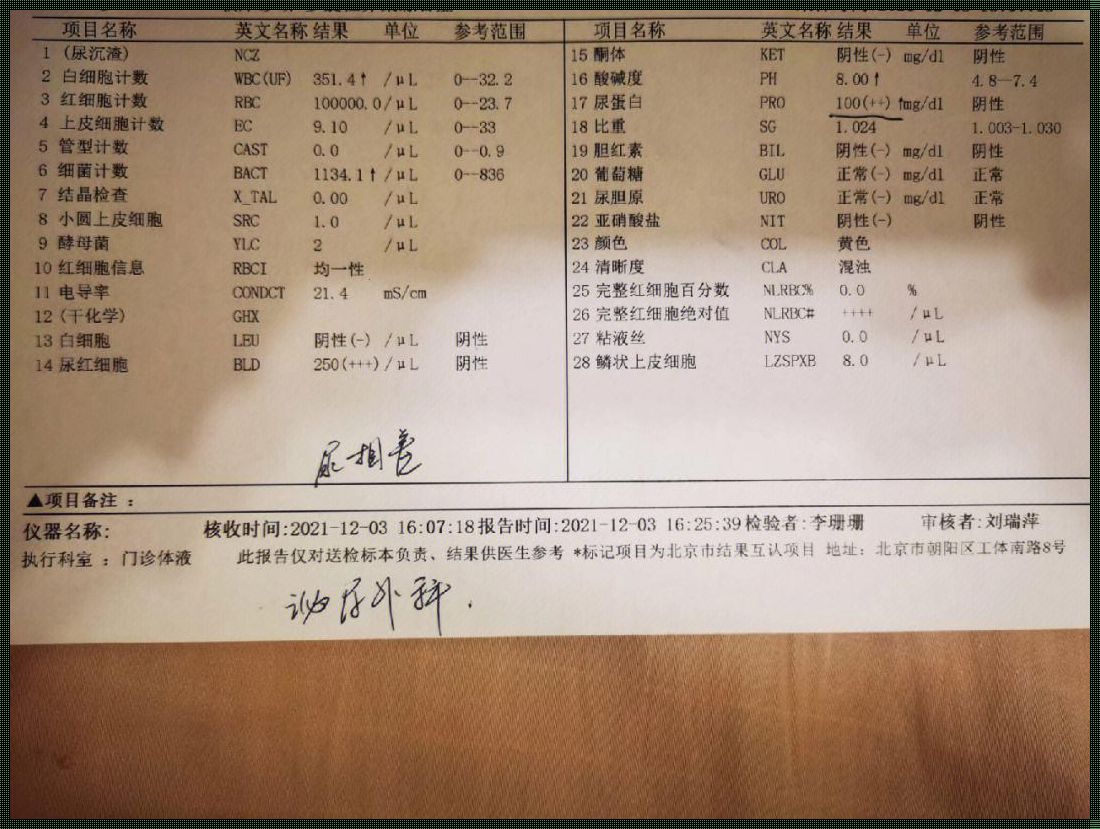 项目名称 英文名称 结果 单位 参考范围
1 (尿沉渣) NCZ
2 白细胞计数 WBC(UF) 351.4↑ /μL 0--32.2
3 红细胞计数 RBC 100000.0 /μL 0--23.7
4 上皮细胞计数 EC 9.10 /μL 0--33
5 管型计数 CAST 0.0 /μL 0--0.9
6 细菌计数 BACT 1134.1↑ /μL 0--836
7 结晶检查 X_TAL 0.00 /μL
8 小圆上皮细胞 SRC 1.0 /μL
9 酵母菌 YLC 2 /μL
10 红细胞信息 RBCI 均一性
11 电导率 CONDCT 21.4 mS/cm
12 (干化学) GHX
13 白细胞 LEU 阴性(-) /μL 阴性
14 尿红细胞 BLD 250(+++) /μL 阴性
项目名称 英文名称 结果 单位 参考范围
15 酮体 KET 阴性(-) mg/dl 阴性
16 酸碱度 PH 8.00↑ 4.8--7.4
17 尿蛋白 PRO 100(++) ↑mg/dl 阴性
18 比重 SG 1.024 1.003-1.030
19 胆红素 BIL 阴性(-) mg/dl 阴性
20 葡萄糖 GLU 正常(-) mg/dl 正常
21 尿胆原 URO 正常(-) mg/dl 正常
22 亚硝酸盐 NIT 阴性(-) 阴性
23 颜色 COL 黄色
24 清晰度 CLA 混浊
25 完整红细胞百分数 NLRBC% 0.0 %
26 完整红细胞绝对值 NLRBC# ++++ /μL
27 粘液丝 NYS 0.0 /μL
28 鳞状上皮细胞 LZSPXB 8.0 /μL
尿相差
▲项目备注：
仪器名称: 核收时间:2021-12-03 16:07:18 报告时间:2021-12-03 16:25:39 检验者:李珊珊 审核者:刘瑞萍
执行科室：门诊体液 此报告仅对送检标本负责、结果供医生参考 *标记项目为北京市结果互认项目 地址：北京市朝阳区工体南路8号
泌尿外科.